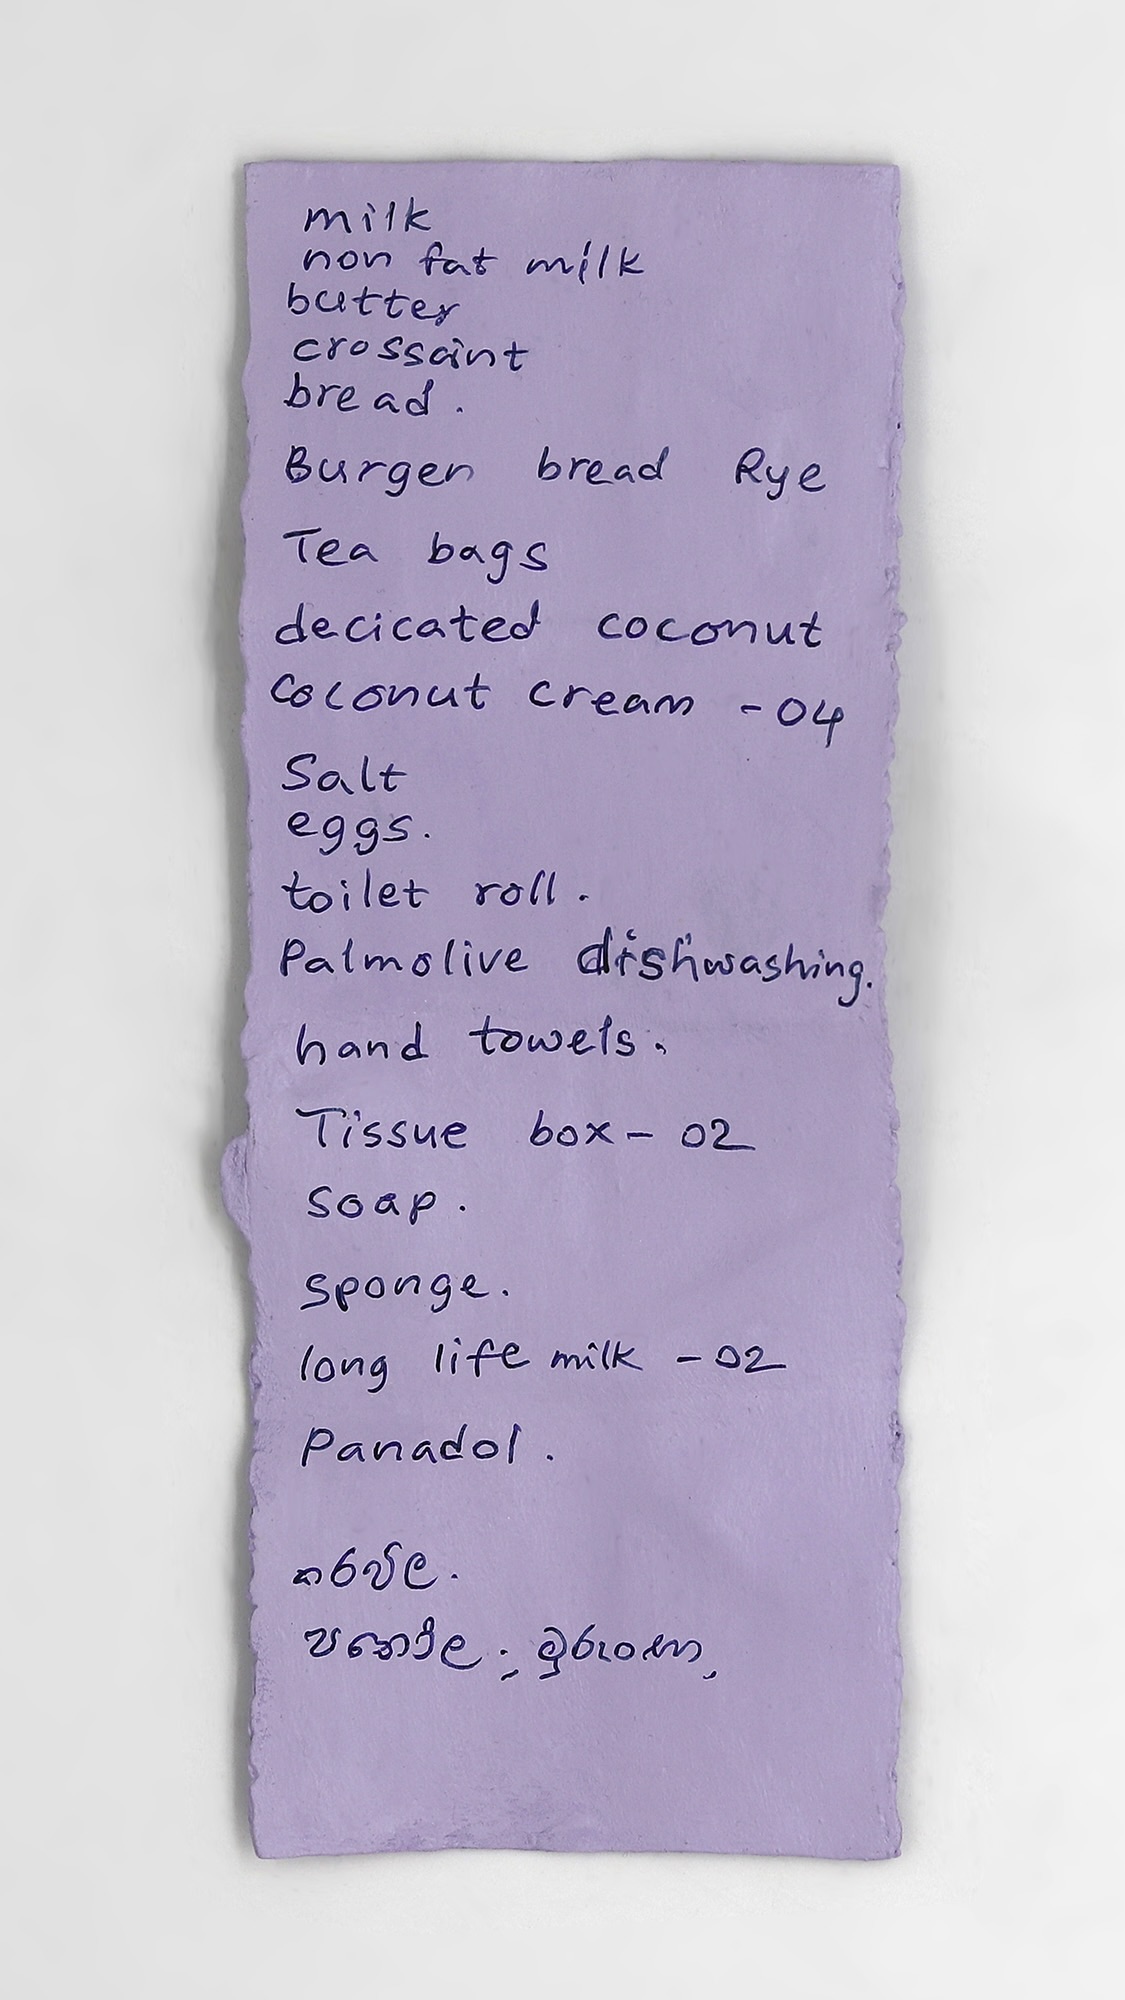 milk
non fat milk
butter
crossaint
bread.
Burgen bread Rye
Tea bags
decicated coconut
Coconut cream - 04
Salt
eggs.
toilet roll.
Palmolive dishwashing.
hand towels.
Tissue box - 02
Soap.
Sponge.
long life milk - 02
Panadol.
කරවිල.
පතෝල., මුරුංගා,